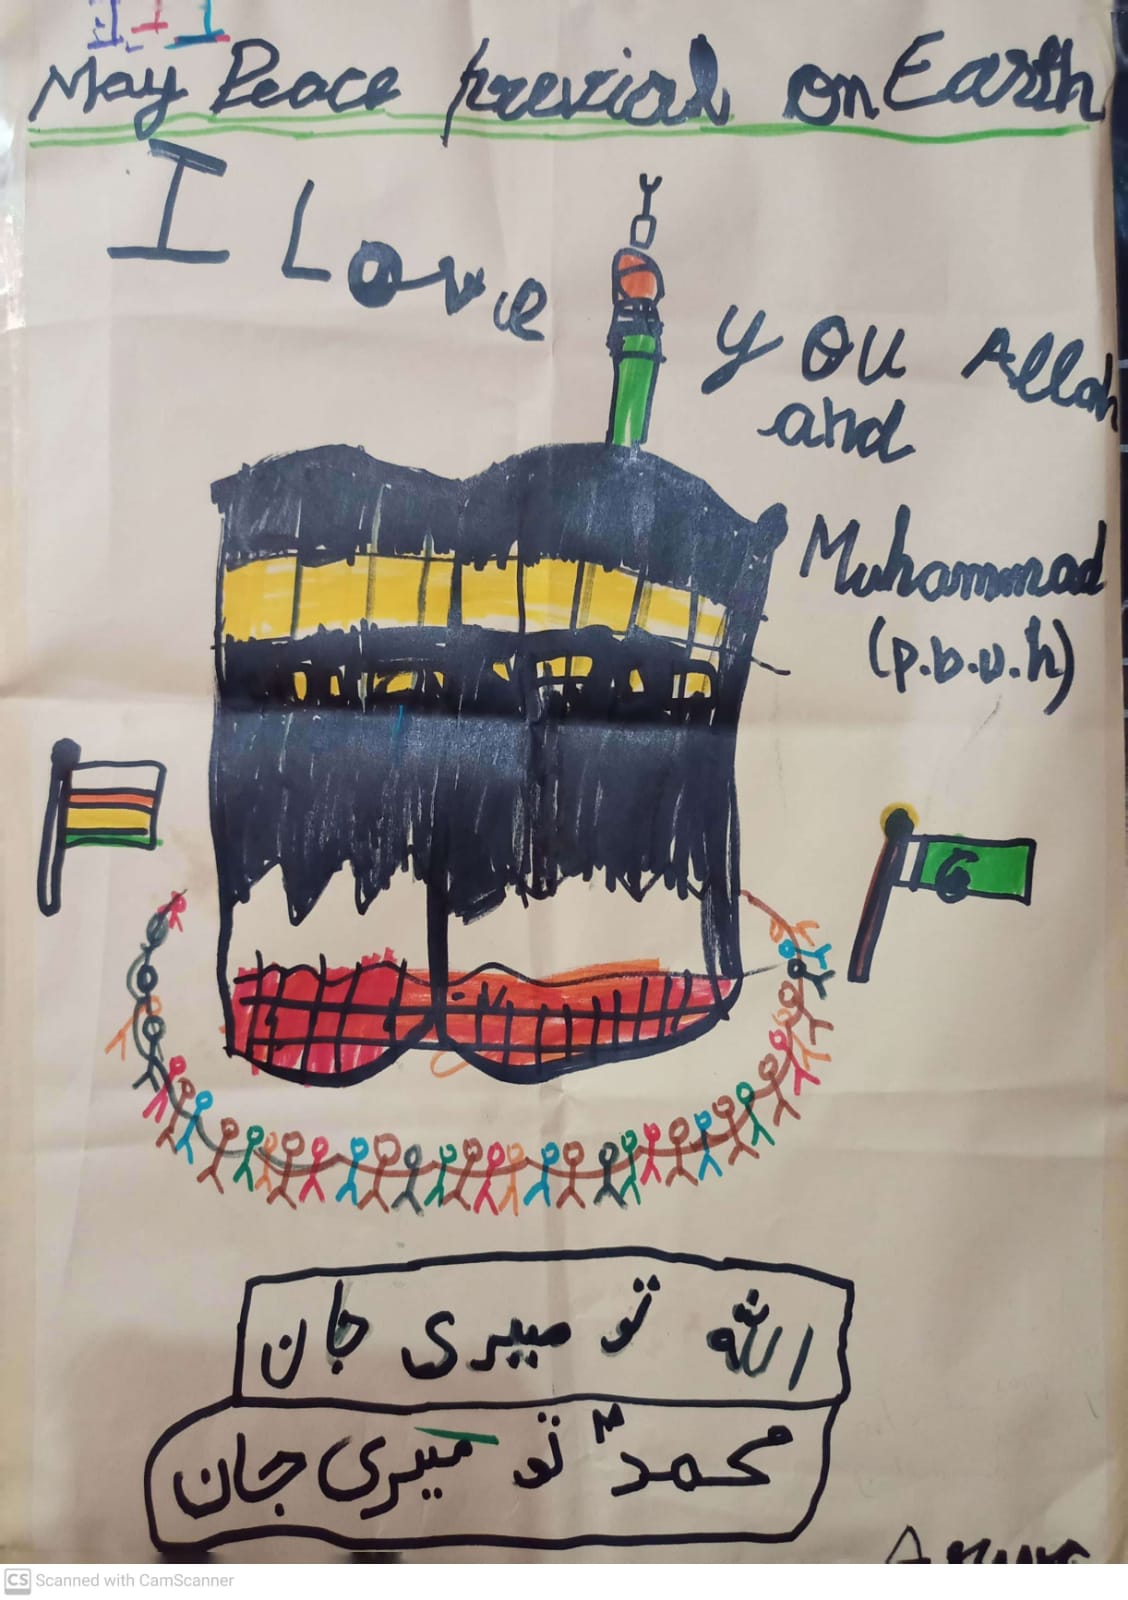 May Peace previal on Earth
I Love you Allah
and
Muhammad
(p.b.u.h)
اللہ تو میری جان
محمدؐ تو میری جان
CS Scanned with CamScanner